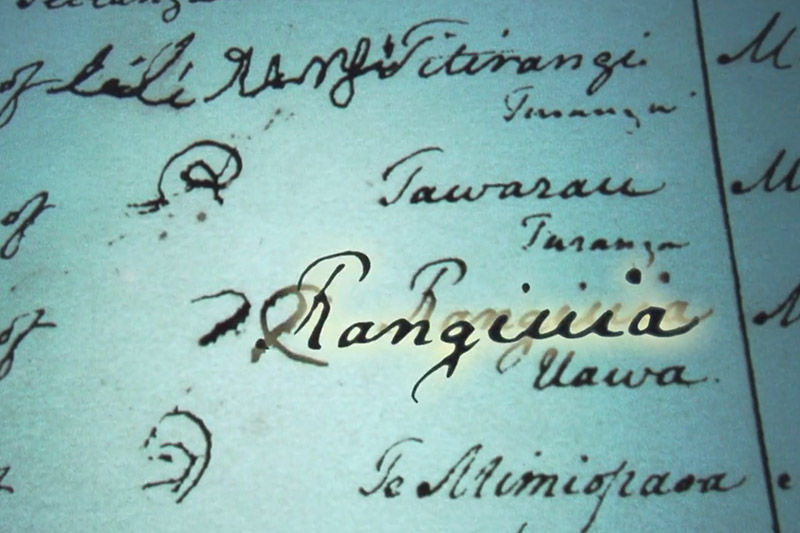 of Titirangi M
Turanga
of Tawarau M
Turanga
of Rangiuia M
Uawa.
Te Mimiopaoa